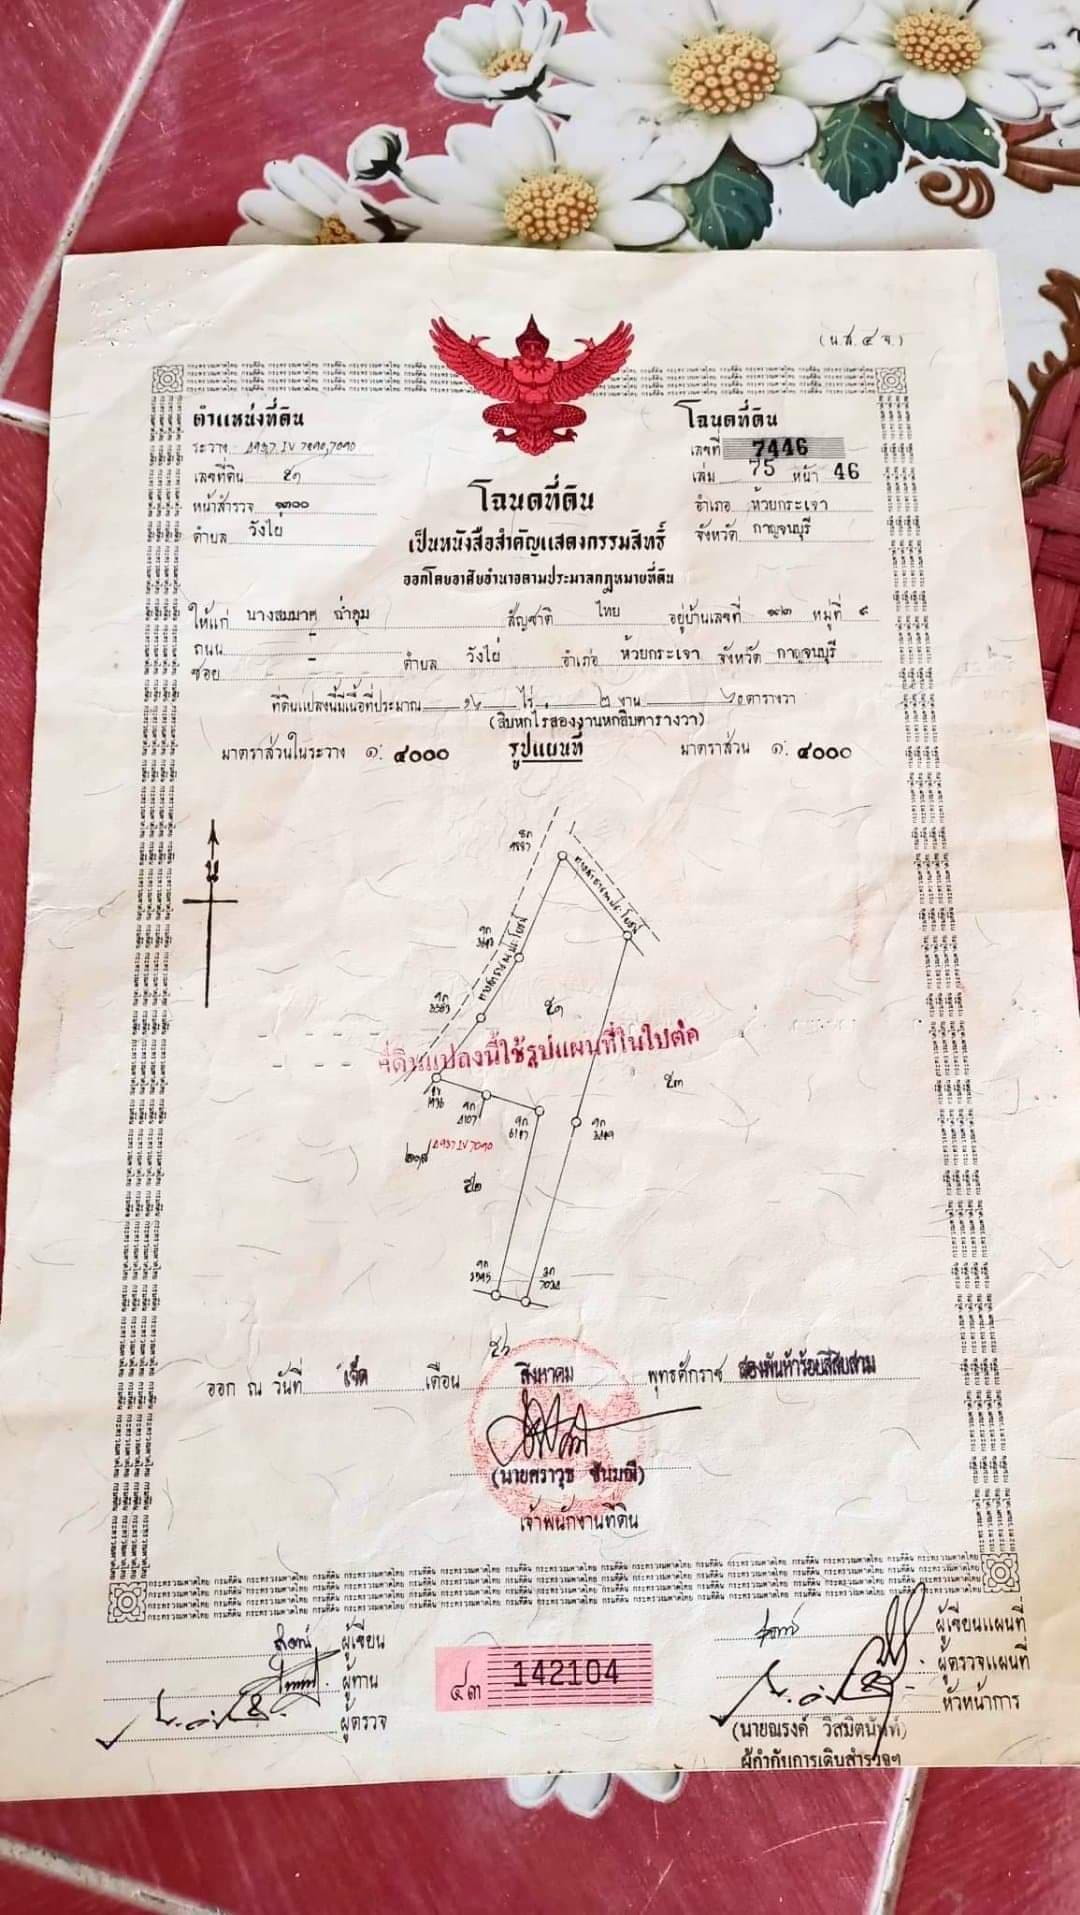 (น.ส.๔ จ.)
ตำแหน่งที่ดิน
ระวาง 4937 IV 7090,7090
เลขที่ดิน ๕๑
หน้าสำรวจ ๑๓๐๐
ตำบล วังไผ่
โฉนดที่ดิน
เลขที่ 7446
เล่ม 75 หน้า 46
อำเภอ ห้วยกระเจา
จังหวัด กาญจนบุรี
โฉนดที่ดิน
เป็นหนังสือสำคัญแสดงกรรมสิทธิ์
ออกโดยอาศัยอำนาจตามประมวลกฎหมายที่ดิน
ให้แก่ นางสมมาศ ฉ่ำคุม สัญชาติ ไทย อยู่บ้านเลขที่ ๑๙๒ หมู่ที่ ๙
ถนน -
ซอย - ตำบล วังไผ่ อำเภอ ห้วยกระเจา จังหวัด กาญจนบุรี
ที่ดินแปลงนี้มีเนื้อที่ประมาณ ๑๖ ไร่ ๒ งาน ๖๐ ตารางวา
(สิบหกไร่สองงานหกสิบตารางวา)
มาตราส่วนในระวาง ๑: ๔๐๐๐ รูปแผนที่ มาตราส่วน ๑: ๔๐๐๐
น
ทางสาธารณประโยชน์
ทางสาธารณประโยชน์
๕๑
ที่ดินแปลงนี้ใช้รูปแผนที่ในใบต่อ
๕๓
4937 IV 7090
๕๒
ออก ณ วันที่ เจ็ด เดือน สิงหาคม พุทธศักราช สองพันห้าร้อยสี่สิบสาม
(นายศราวุธ ชันมณี)
เจ้าพนักงานที่ดิน
ผู้เขียน
ผู้ทาน
ผู้ตรวจ
๔๓ 142104
ผู้เขียนแผนที่
ผู้ตรวจแผนที่
หัวหน้าการ
(นายณรงค์ วิสมิตนันท์)
ผู้กำกับการเดินสำรวจฯ